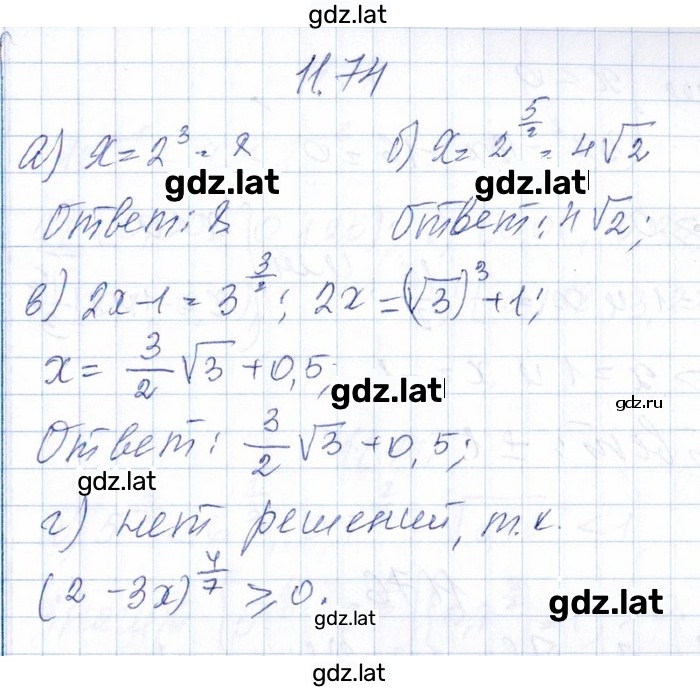 gdz.lat
11.74
а) x = 2^3 = 8 б) x = 2^{5/2} = 4√2
gdz.lat gdz.lat
Ответ: 8. Ответ: 4√2;
в) 2x-1 = 3^{3/2}; 2x = (√3)^3 + 1;
x = 3/2 √3 + 0,5;
gdz.lat
gdz.ru
Ответ: 3/2 √3 + 0,5;
gdz.lat
г) нет решений, т.к.
(2 - 3x)^{4/7} ⩾ 0.
gdz.lat
gdz.lat
gdz.lat